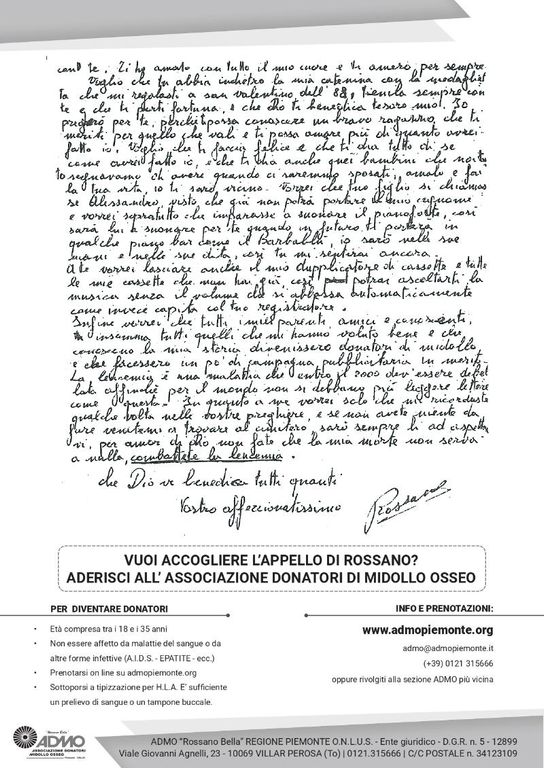 con te. Ti ho amato con tutto il mio cuore e ti amerò per sempre
Voglio che tu abbia indietro la mia catenina con la medagliet
ta che mi regalasti a san valentino dell'88, tienila sempre con
te e che ti porti fortuna, e che Dio ti benedica tesoro mio! Io
pregherò per te, perché tu possa conoscere un bravo ragazzo, che ti
meriti per quello che vali e ti possa amare più di quanto avrei
fatto io. Voglio che ti faccia felice e che ti dia tutto di se
come avrei fatto io, e che ti dia anche quei bambini che noi
sognavamo di avere quando ci saremmo sposati, amalo e fai
la tua vita, io ti sarò vicino. Vorrei che tuo figlio si chiamas
se Alessandro, visto che già non potrà portare il mio cognome
e vorrei sopratutto che imparasse a suonare il pianoforte, così
sarà lui a suonare per te quando in futuro ti porterà in
qualche piano bar come il Barbablù, io sarò nelle sue
mani e nelle sue dita, così tu mi sentirai ancora.
A te vorrei lasciare anche il mio dupplicatore di cassette e tutte
le mie cassette che non hai, così potrai ascoltarti la
musica senza il volume che si abbassa automaticamente
come invece capita col tuo registratore.
Infine vorrei che tutti i miei parenti, amici e conoscenti,
insomma tutti quelli che mi hanno voluto bene e che
conoscono la mia storia divenissero donatori di midollo
e che facessero un po' di campagna pubblicitaria in merito.
La leucemia è una malattia che entro il 2000 dev'essere debel
lata affinché per il mondo non si debbano più leggere lettere
come questa. In quanto a me vorrei solo che mi ricordaste
qualche volta nelle vostre preghiere, e se non avete niente da
fare venitemi a trovare al cimitero, sarò sempre lì ad aspetta
vi, per amor di Dio non fate che la mia morte non serva
a nulla, combattete la leucemia.
che Dio vi benedica tutti quanti
Vostro affezionatissimo
Rossano
VUOI ACCOGLIERE L'APPELLO DI ROSSANO?
ADERISCI ALL' ASSOCIAZIONE DONATORI DI MIDOLLO OSSEO
PER DIVENTARE DONATORI
• Età compresa tra i 18 e i 35 anni
• Non essere affetto da malattie del sangue o da
altre forme infettive (A.I.D.S. - EPATITE - ecc.)
• Prenotarsi on line su admopiemonte.org
• Sottoporsi a tipizzazione per H.L.A. E' sufficiente
un prelievo di sangue o un tampone buccale.
INFO E PRENOTAZIONI:
www.admopiemonte.org
admo@admopiemonte.it
(+39) 0121 315666
oppure rivolgiti alla sezione ADMO più vicina
"Rossano Bella"
ADMO
ASSOCIAZIONE DONATORI
MIDOLLO OSSEO
ADMO "Rossano Bella" REGIONE PIEMONTE O.N.L.U.S. - Ente giuridico - D.G.R. n. 5 - 12899
Viale Giovanni Agnelli, 23 - 10069 VILLAR PEROSA (To) | 0121.315666 | C/C POSTALE n. 34123109